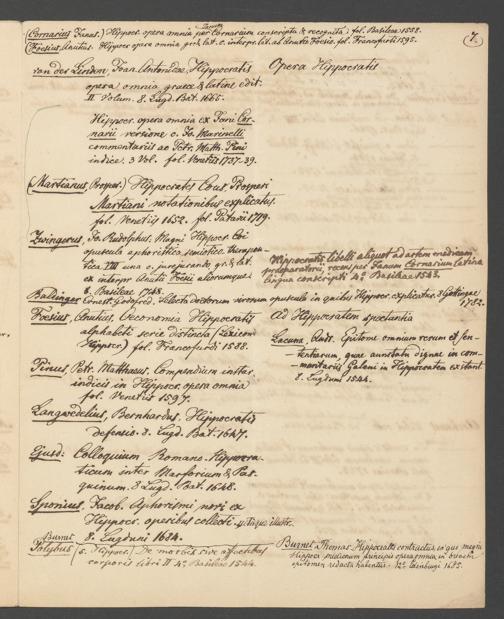 7.
(Cornarius, Janus.) Hippocr. opera omnia per Cornarium conscripta & recognita, fol. Basileae 1558.
(Foesius, Anutius. Hippocr. opera omnia gr. & lat. c. interpr. lat. ab Anutio Foesio. fol. Francofurti 1595.
van der Linden, Joan. Antonidae, Hippocratis
opera omnia graece & latine edit.
II Volum. 8. Lugd. Bat. 1665.
Hippocr. opera omnia ex Jani Cor-
narii versione c. Jo. Marinelli
commentariis ac Petr. Matth. Pini
indice. 3 Vol. fol. Venetiis 1737-39.
(Martianus, Prosper.) Hippocrates Cous, Prosperi
Martiani notationibus explicatus.
fol. Venetiis 1652. fol. Patavii 1719.
Zwingerus, Jo. Rudolphus, Magni Hippocr. Coi
opuscula aphoristica semiotico-therapeu-
tica VIII una c. jurejurando, gr. & lat.
ex interpr. Anutii Foesii aliorumque.
8. Basileae 1748.
Baldinger Ernest. Godofred. Selecta doctorum virorum opuscula in quibus Hippocr. explicatur. 3 Gottingae
1782.
Foesius, Anutius, Oeconomia Hippocratis
alphabeti serie distincta (Lexicon
Hippocr.) fol. Francofurdi 1588.
Pinus, Petr. Matthaeus, Compendium instar
indicis in Hippocr. opera omnia
fol. Venetiis 1597.
Langwedelius, Bernhardus, Hippocratis
defensio. 8. Lugd. Bat. 1647.
Ejusd: Colloquium Romano-Hippocra-
ticum inter Marforium & Pas-
quinum. 8 Lugd. Bat. 1648.
Sponius, Jacob. Aphorismi novi ex
Hippocr. operibus collecti
8. Lugduni 1684.
Burnet
Polybus (s. Hippocr.) De morbis sive affectibus
corporis libri II 4° Basileae 1544.
Opera Hippocratis
Hippocratis libelli aliquot ad artem medicam
praeparatorii, recens per Janum Cornarium latina
lingua conscripti 4° Basileae 1543.
Ad Hippocratem spectantia
Lacuna, Andr. Epitome omnium rerum et sen-
tentiarum, quae annotatu dignae in com-
mentariis Galeni in Hippocratem exstant.
8. Lugduni 1554.
Burnet Thomas, Hippocrates contractus, in quo magni
Hippocr. medicorum principis opera omnia in brevem
epitomen redacta habentur. 12° Edinburgi 1685.